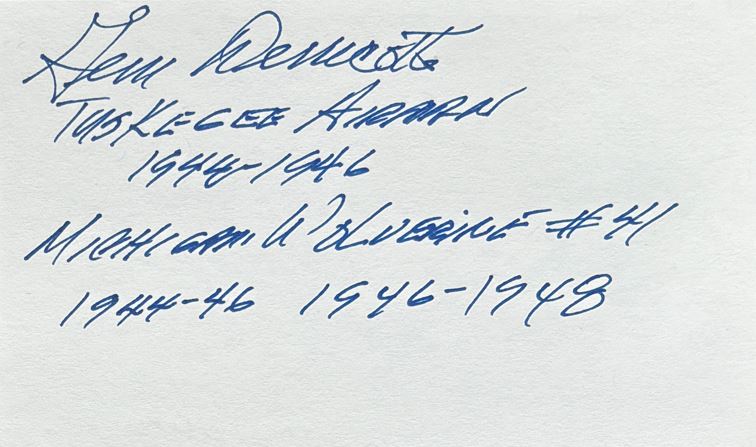 Gene Derricotte
TUSKEGEE AIRMAN
1944-1946
MICHIGAN WOLVERINE #41
1944-46 1946-1948